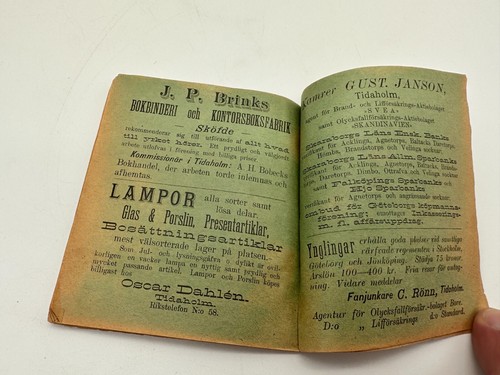 J. P. Brinks
BOKBINDERI och KONTORSBOKSFABRIK
Sköfde
rekommenderas sig till utförande af allt hvad
till yrket hörer. Ett prydligt och välgjordt
arbete utlofvas i förening med billiga priser.
Kommissionär i Tidaholm: A. H. Bobecks
Bokhandel, der arbeten torde inlemnas och
afhemtas.
LAMPOR alla sorter samt
lösa delar,
Glas & Porslin, Presentartiklar,
Bosättningsartiklar
mest välsorterade lager på platsen.
Som Jul- och lysningsgåfva o dylikt är
korligen en vacker lampa en nyttig samt prydlig och
mycket passande artikel. Lampor och Porslin köpes
billigast hos
Oscar Dahlén.
Tidaholm.
Rikstelefon N:o 58.
Kamrer GUST. JANSON,
Tidaholm,
agent för Brand- och Lifförsäkrings-Aktiebolaget
»SVEA«
samt Olycksfallförsäkrings-Aktiebolaget
»SKANDINAVIEN«
Skaraborgs Läns Ensk. Banks
ombud för Acklinga, Agnetorps, Baltaks Daretorps,
Hömbs, Brandstorps och Velinga socknar.
Skaraborgs Läns Allm. Sparbanks
ombud för Acklinga, Agnetorps, Baltaks,
Daretorps, Dimbo, Ottrafva och Velinga socknar
samt Falköpings Sparbanks
och Hjo Sparbanks
ombud för Agnetorps och angränsande socknar.
ombud för Göteborgs köpmanna-
förening; emottager Inkasserings-
m. fl. affärsuppdrag.
Ynglingar erhålla goda platser vid samtliga
värfvade regementen i Stockholm,
Göteborg och Jönköping. Städja 75 kronor.
årslön 100—400 kr. Fria resor för antag-
ning. Vidare meddelar
Fanjunkare C. Rönn, Tidaholm.
Agentur för Olycksfallförsäkr.-bolaget Bore.
D:o „ Lifförsäkrings d:o Standard.